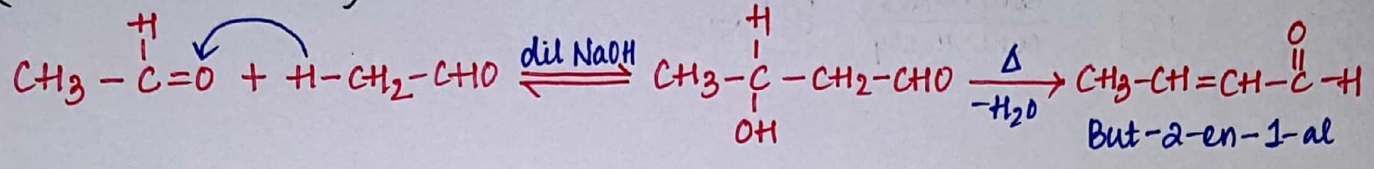 H H O
CH3 – C = O + H–CH2–CHO dil NaOH ⇌ CH3–C–CH2–CHO Δ → –H2O CH3–CH=CH–C–H
OH But-2-en-1-al